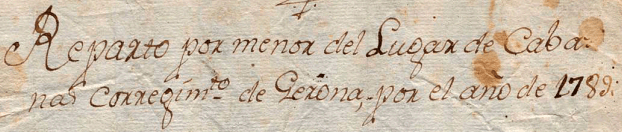 Reparto por menor del Lugar de Caba=
nas Corregim.to de Gerona, por el año de 1789.